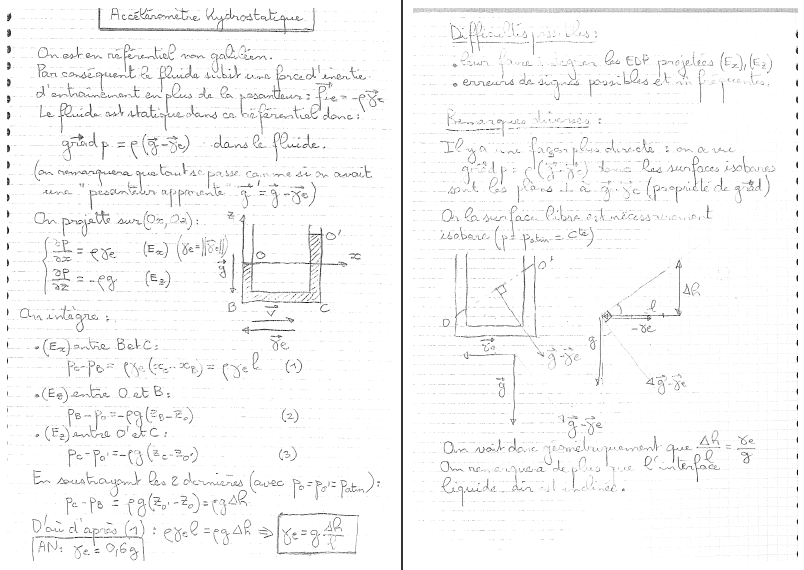 Accéléromètre Hydrostatique
On est en référentiel non galiléen.
Par conséquent le fluide subit une force d'inertie
d'entraînement en plus de la pesanteur : = -ργe
Le fluide est statique dans ce référentiel donc :
grad p = ρ(g - γe) dans le fluide.
(on remarquera que tout se passe comme si on avait
une "pesanteur apparente" g' = g - γe)
On projette sur (Ox, Oz) :
∂p/∂x = ργe (Ex) (γe = ||γe||)
∂p/∂z = -ρg (Ez)
z
O'
O
x
g
B
C
V
γe
On intègre :
• (Ex) entre B et C :
pC - pB = ργe(xC - xB) = ργe l (1)
• (Ez) entre O et B :
pB - pO = -ρg(zB - zO) (2)
• (Ez) entre O' et C :
pC - pO' = -ρg(zC - zO') (3)
En soustrayant les 2 dernières (avec pO = pO' = patm) :
pC - pB = ρg(zO' - zO) = ρgΔh
D'où d'après (1) : ργe l = ρgΔh ⇒ γe = g Δh/l
AN : γe = 0,6g
Difficultés possibles :
• Pour faire intégrer les EDP projetées (Ex), (Ez)
• erreurs de signes possibles et fréquentes.
Remarques diverses :
Il y a une façon plus directe : on a vu
grad p = ρ(g - γe) donc les surfaces isobares
sont les plans ⊥ à g - γe (propriété de grad)
Or la surface libre est nécessairement
isobare (p = patm = Cte)
O'
O
γe
g
g - γe
Δh
l
-γe
g
g - γe
g - γe
On voit donc géométriquement que Δh/l = γe/g
On remarquera de plus que l'interface
liquide air est inclinée.